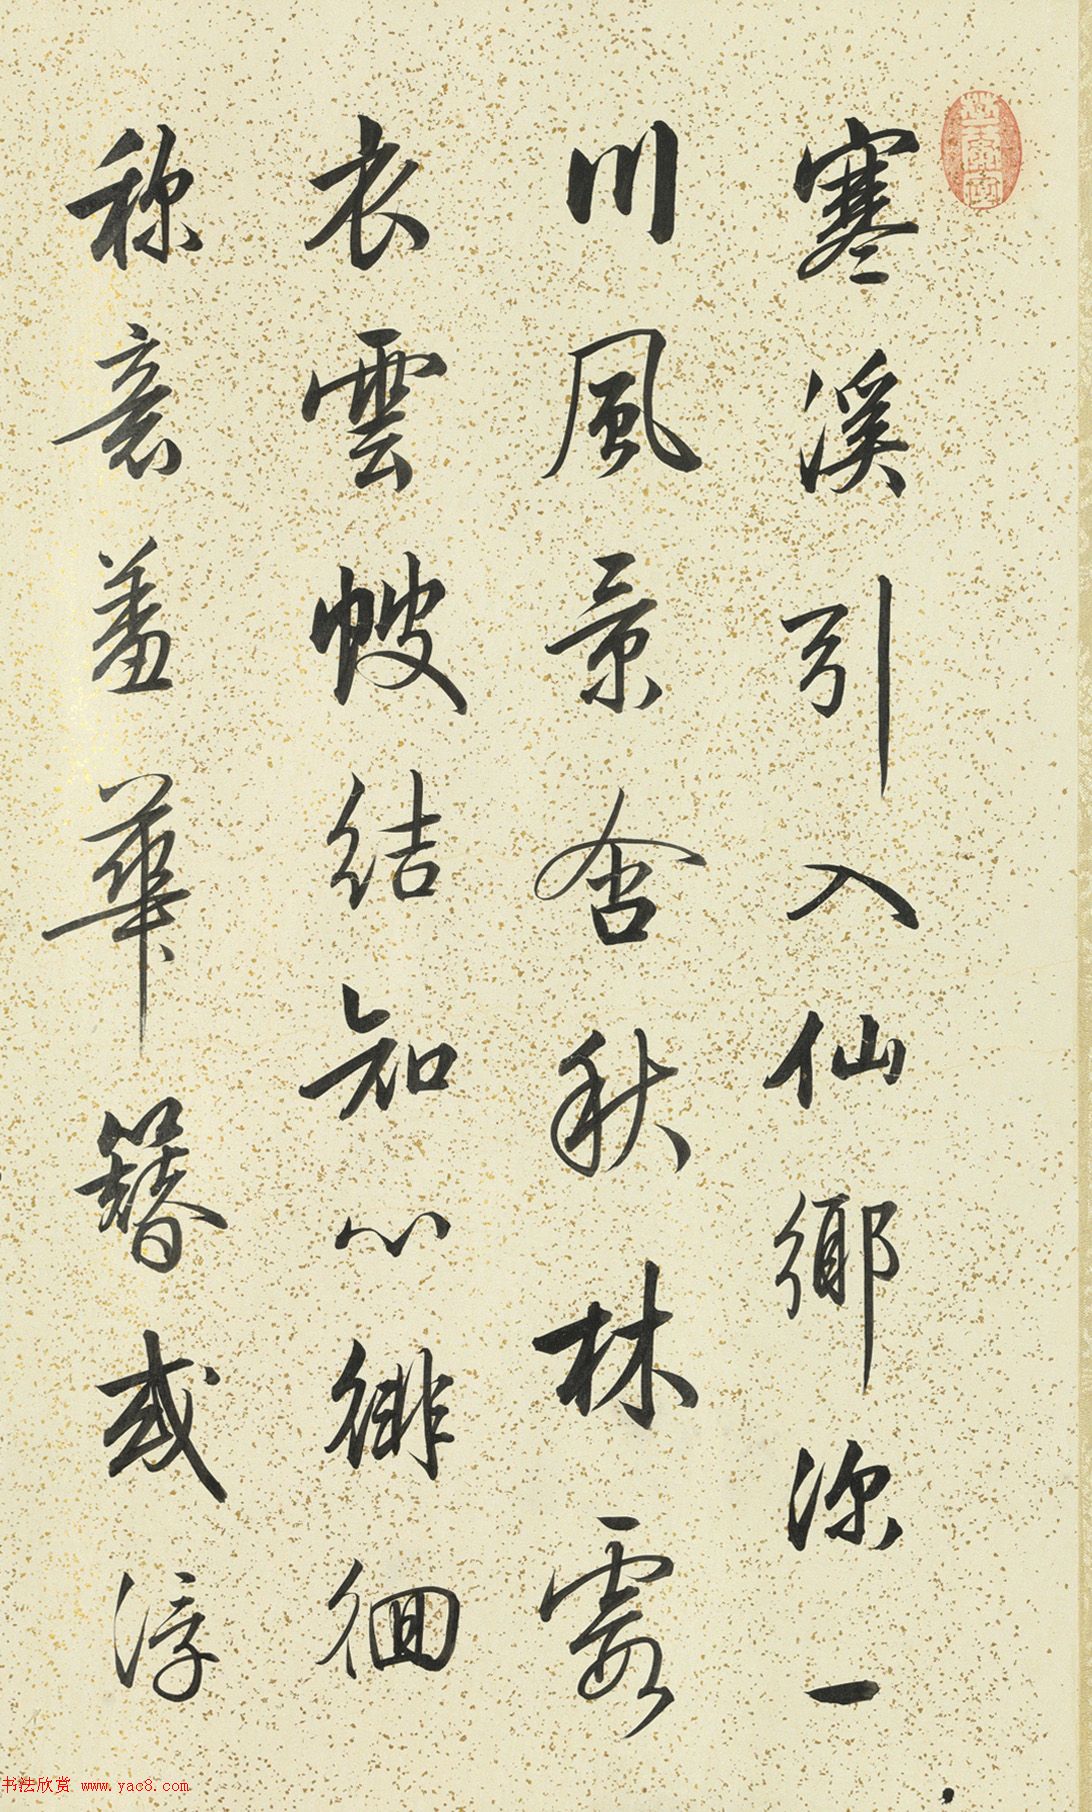 寒溪引入仙鄉深一
川風景含秋林霞
衣雲帔結知心徘徊
称意羞華簪或浮
书法欣赏 www.yac8.com